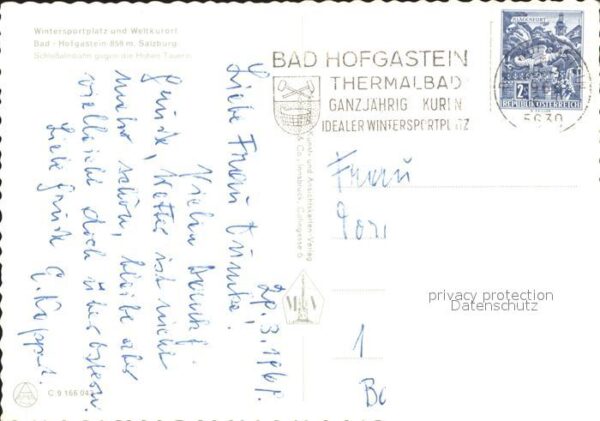 Wintersportplatz und Weltkurort
Bad-Hofgastein 859 m, Salzburg
Schloßalmbahn gegen die Hohen Tauern
BAD HOFGASTEIN
THERMALBAD
GANZJÄHRIG KUREN
IDEALER WINTERSPORTPLATZ
KLAGENFURT
2
REPUBLIK ÖSTERREICH
5630
3.1969.
Liebe Frau
Vielen Dank f.
Grüße, Wetter ist nicht
mehr schön, bleibe aber
vielleicht doch über Ostern.
Liebe Grüße
Kunst- und Ansichtskarten-Verlag
& Co., Innsbruck,
Frau
1
C 9 166
privacy protection
Datenschutz